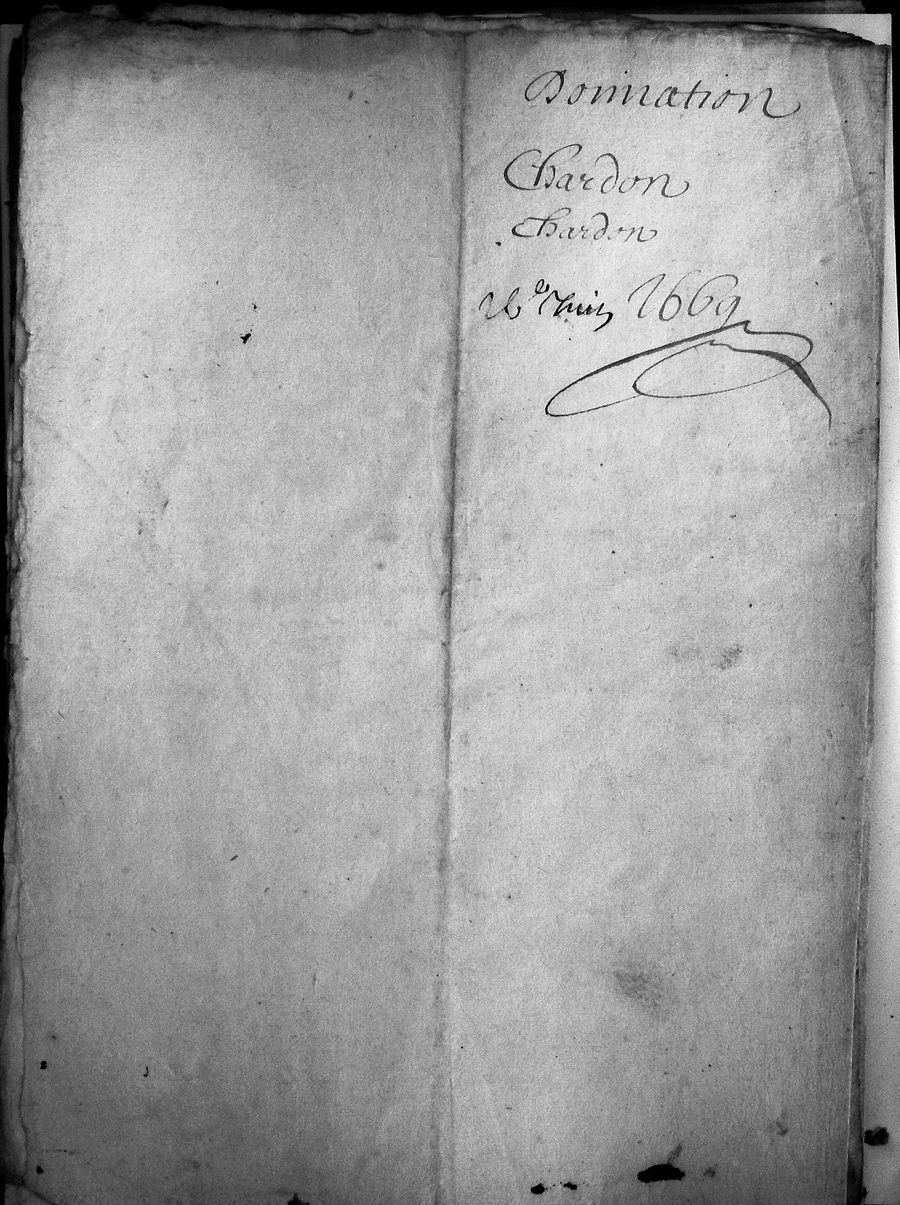 Donnation
Chardon
Chardon
1669